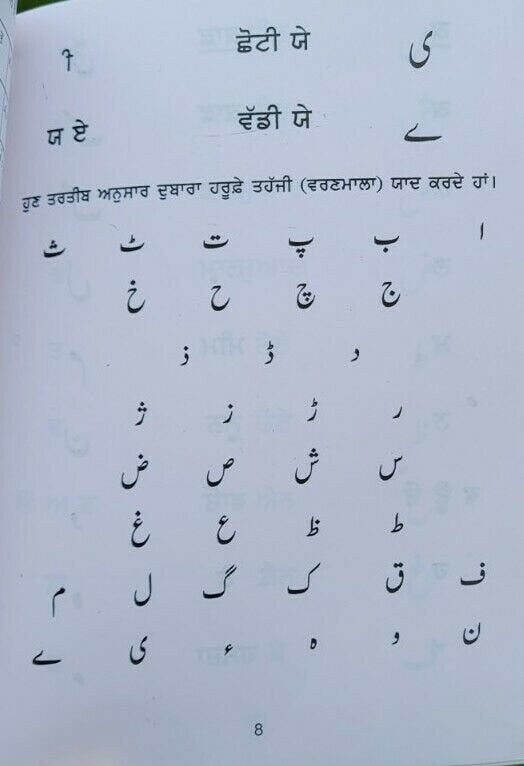 ੀ ਛੋਟੀ ਯੇ ی
ਯ ਏ ਵੱਡੀ ਯੇ ے
ਹੁਣ ਤਰਤੀਬ ਅਨੁਸਾਰ ਦੁਬਾਰਾ ਹਰੂਫ਼ੇ ਤਹੱਜੀ (ਵਰਣਮਾਲਾ) ਯਾਦ ਕਰਦੇ ਹਾਂ।
ا ب پ ت ٹ ث
ج چ ح خ
د ڈ ذ
ر ڑ ز ژ
س ش ص ض
ط ظ ع غ
ف ق ک گ ل م
ن و ہ ء ی ے
8